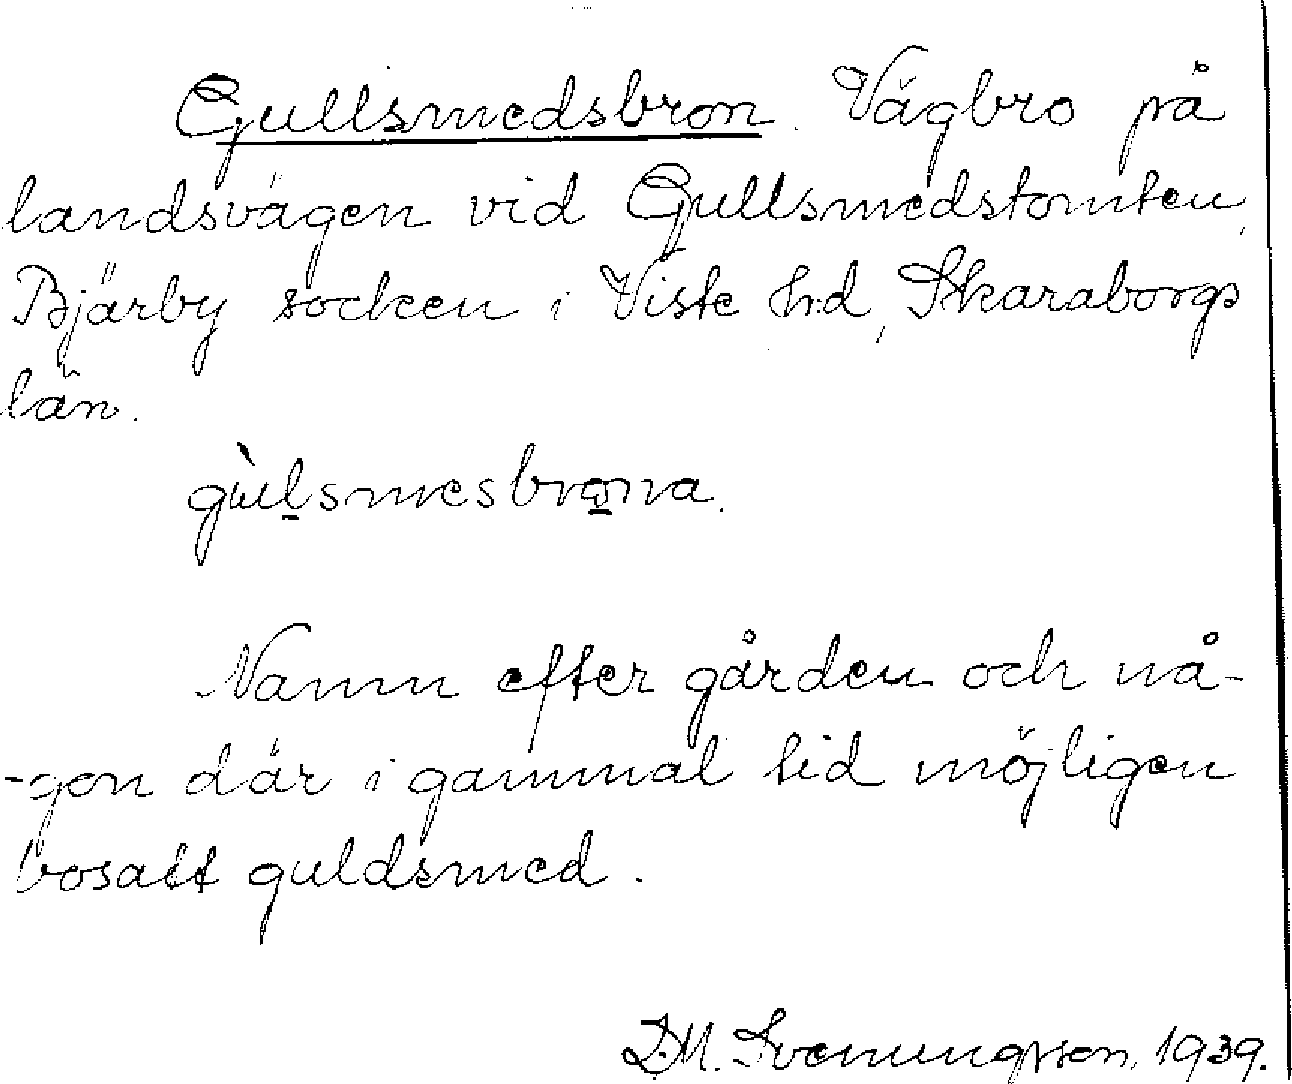 Gullsmedsbron. Vägbro på
landsvägen vid Gullsmedstomten,
Bjärby socken i Viste h:d, Skaraborgs
län.
gùlsmesbrona.
Namn efter gården och nå-
-gon där i gammal tid möjligen
bosatt guldsmed.
D.M. Svenungsson, 1939.